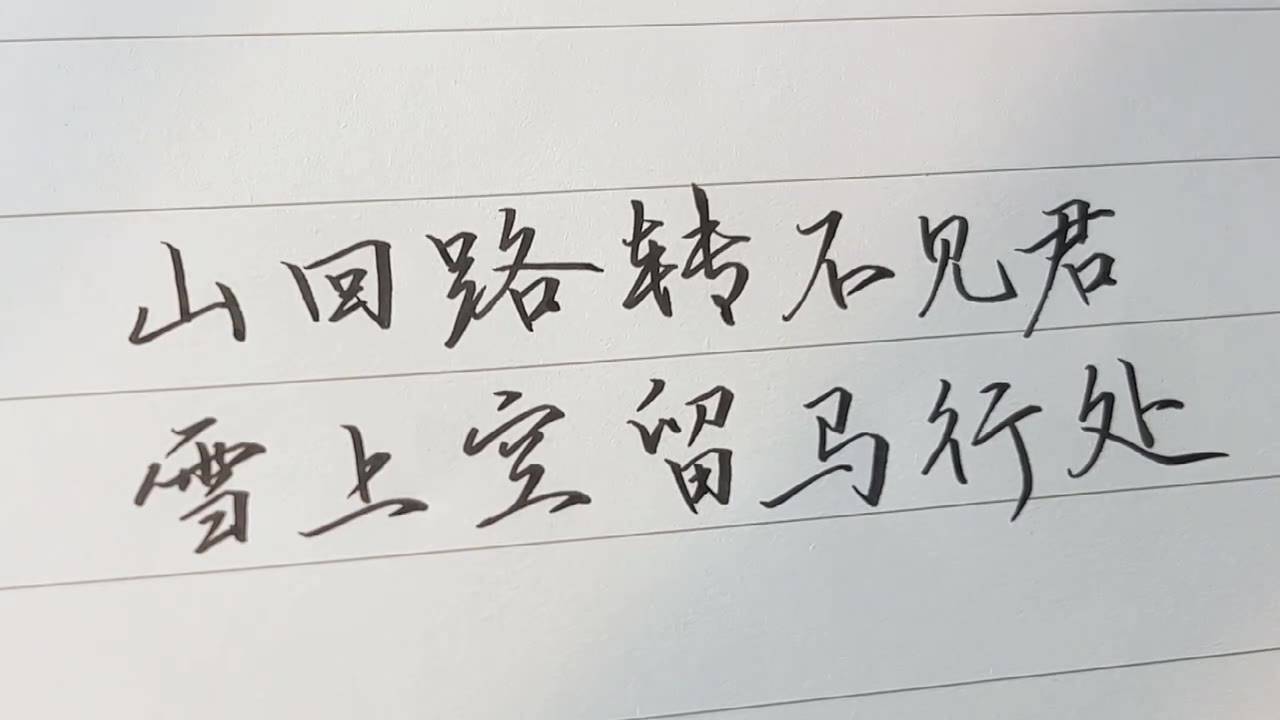 山回路转不见君
雪上空留马行处